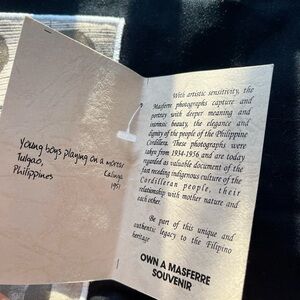 Young boys playing on a mortar
Tulgao, Kalinga
Philippines 1951
With artistic sensitivity, the
Masferre photographs capture and
portray with deeper meaning and
intrinsic beauty, the elegance and
dignity of the people of the Philippine
Cordillera. These photographs were
taken from 1934-1956 and are today
regarded as valuable document of the
fast receding indigenous culture of the
Cordilleran people, their
relationship with mother nature and
each other.
Be part of this unique and
authentic legacy to the Filipino
heritage
OWN A MASFERRE
SOUVENIR